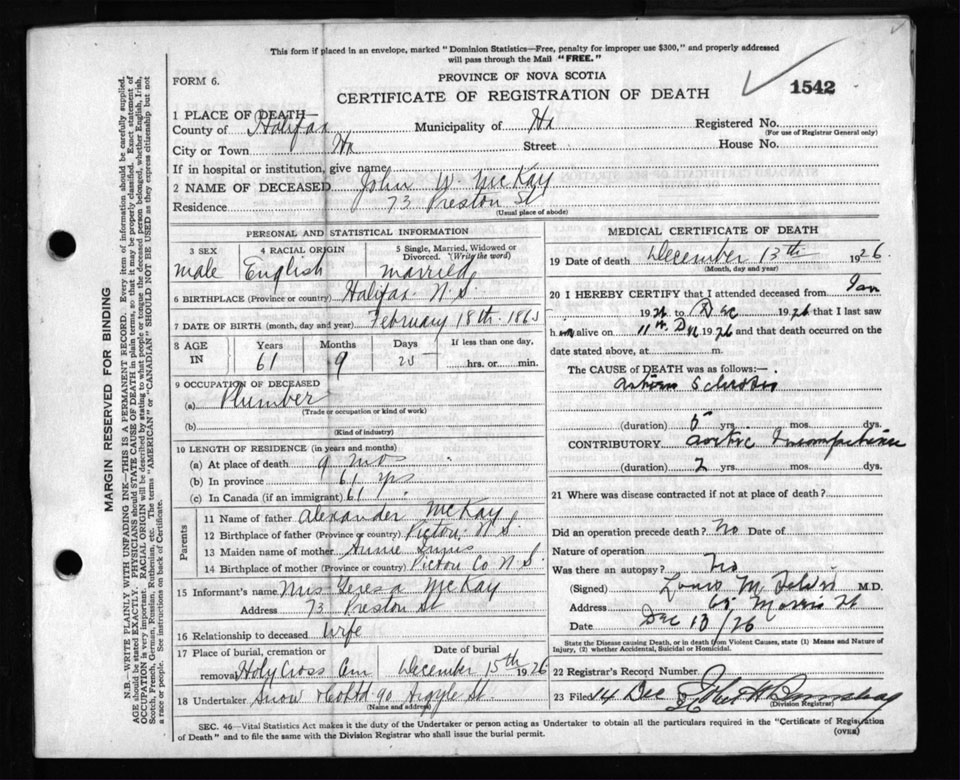 This form if placed in an envelope, marked "Dominion Statistics—Free, penalty for improper use $300," and properly addressed
will pass through the Mail "FREE."
FORM 6.
PROVINCE OF NOVA SCOTIA
CERTIFICATE OF REGISTRATION OF DEATH
1542
1 PLACE OF DEATH—
County of Halifax Municipality of Hx Registered No.
(For use of Registrar General only)
City or Town Hx Street House No.
If in hospital or institution, give name
2 NAME OF DECEASED John W. McKay
Residence 73 Preston St
(Usual place of abode)
PERSONAL AND STATISTICAL INFORMATION
3 SEX 4 RACIAL ORIGIN 5 Single, Married, Widowed or
Divorced. (Write the word)
Male English Married
6 BIRTHPLACE (Province or country) Halifax N.S.
7 DATE OF BIRTH (month, day and year) February 18th 1865
8 AGE IN Years Months Days If less than one day,
61 9 25 hrs. or min.
9 OCCUPATION OF DECEASED
(a) Plumber
(Trade or occupation or kind of work)
(b)
(Kind of industry)
10 LENGTH OF RESIDENCE (in years and months)
(a) At place of death 9 mos
(b) In province 61 yrs
(c) In Canada (if an immigrant) 61
Parents
11 Name of father Alexander McKay
12 Birthplace of father (Province or country) Pictou N.S.
13 Maiden name of mother Annie
14 Birthplace of mother (Province or country) Pictou Co N.S.
15 Informant's name Mrs Teresa McKay
Address 73 Preston St
16 Relationship to deceased Wife
17 Place of burial, cremation or Date of burial
removal Holy Cross Cem December 15th 1926
18 Undertaker Snow & Co Ltd 90 Argyle St
(Name and address)
MEDICAL CERTIFICATE OF DEATH
19 Date of death December 13th 1926
(Month, day and year)
20 I HEREBY CERTIFY that I attended deceased from Jan
1926 to Dec 1926 that I last saw
him alive on 11th Dec 1926 and that death occurred on the
date stated above, at m.
The CAUSE of DEATH was as follows:—
Arterio Sclerosis
(duration) 5 yrs. mos. dys.
CONTRIBUTORY Aortic
(duration) 2 yrs. mos. dys.
21 Where was disease contracted if not at place of death?
Did an operation precede death? No Date of
Nature of operation
Was there an autopsy? No
(Signed) M. M.D.
Address Morris St
Date Dec 13/26
State the Disease causing Death, or in death from Violent Causes, state (1) Means and Nature of
Injury, (2) whether Accidental, Suicidal or Homicidal.
22 Registrar's Record Number
23 Filed 14 Dec
(Division Registrar)
SEC. 46—Vital Statistics Act makes it the duty of the Undertaker or person acting as Undertaker to obtain all the particulars required in the "Certificate of Registration
of Death" and to file the same with the Division Registrar who shall issue the burial permit.
(OVER)
MARGIN RESERVED FOR BINDING
N.B.—WRITE PLAINLY WITH UNFADING INK—THIS IS A PERMANENT RECORD. Every item of information should be carefully supplied.
AGE should be stated EXACTLY. PHYSICIANS should STATE CAUSE OF DEATH in plain terms, so that it may be properly classified. Exact statement of
OCCUPATION is very important. RACIAL ORIGIN will be described by stating to what people or tongue the deceased person belonged, whether English, Irish,
Scotch, French, German, Russian, Ruthenian, etc. The terms "AMERICAN" or "CANADIAN" SHOULD NOT BE USED as they express citizenship but not
a race or people. See instructions on back of Certificate.